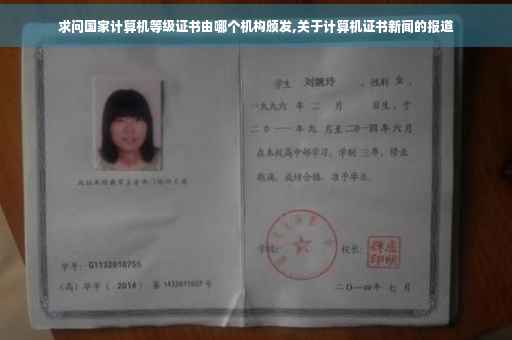 求问国家计算机等级证书由哪个机构颁发,关于计算机证书新闻的报道
学生 刘婉玲 ,性别 女 ,
一九九六 年 二 月 日生,于
二〇一一年九 月至二〇一四年六月
在本校高中部学习,学制 三年,修业
期满,成绩合格,准予毕业。
学号: G1132010755
学校: 校长:
(高)毕字( 2014 )第 1432011027 号
二〇一四年 七 月